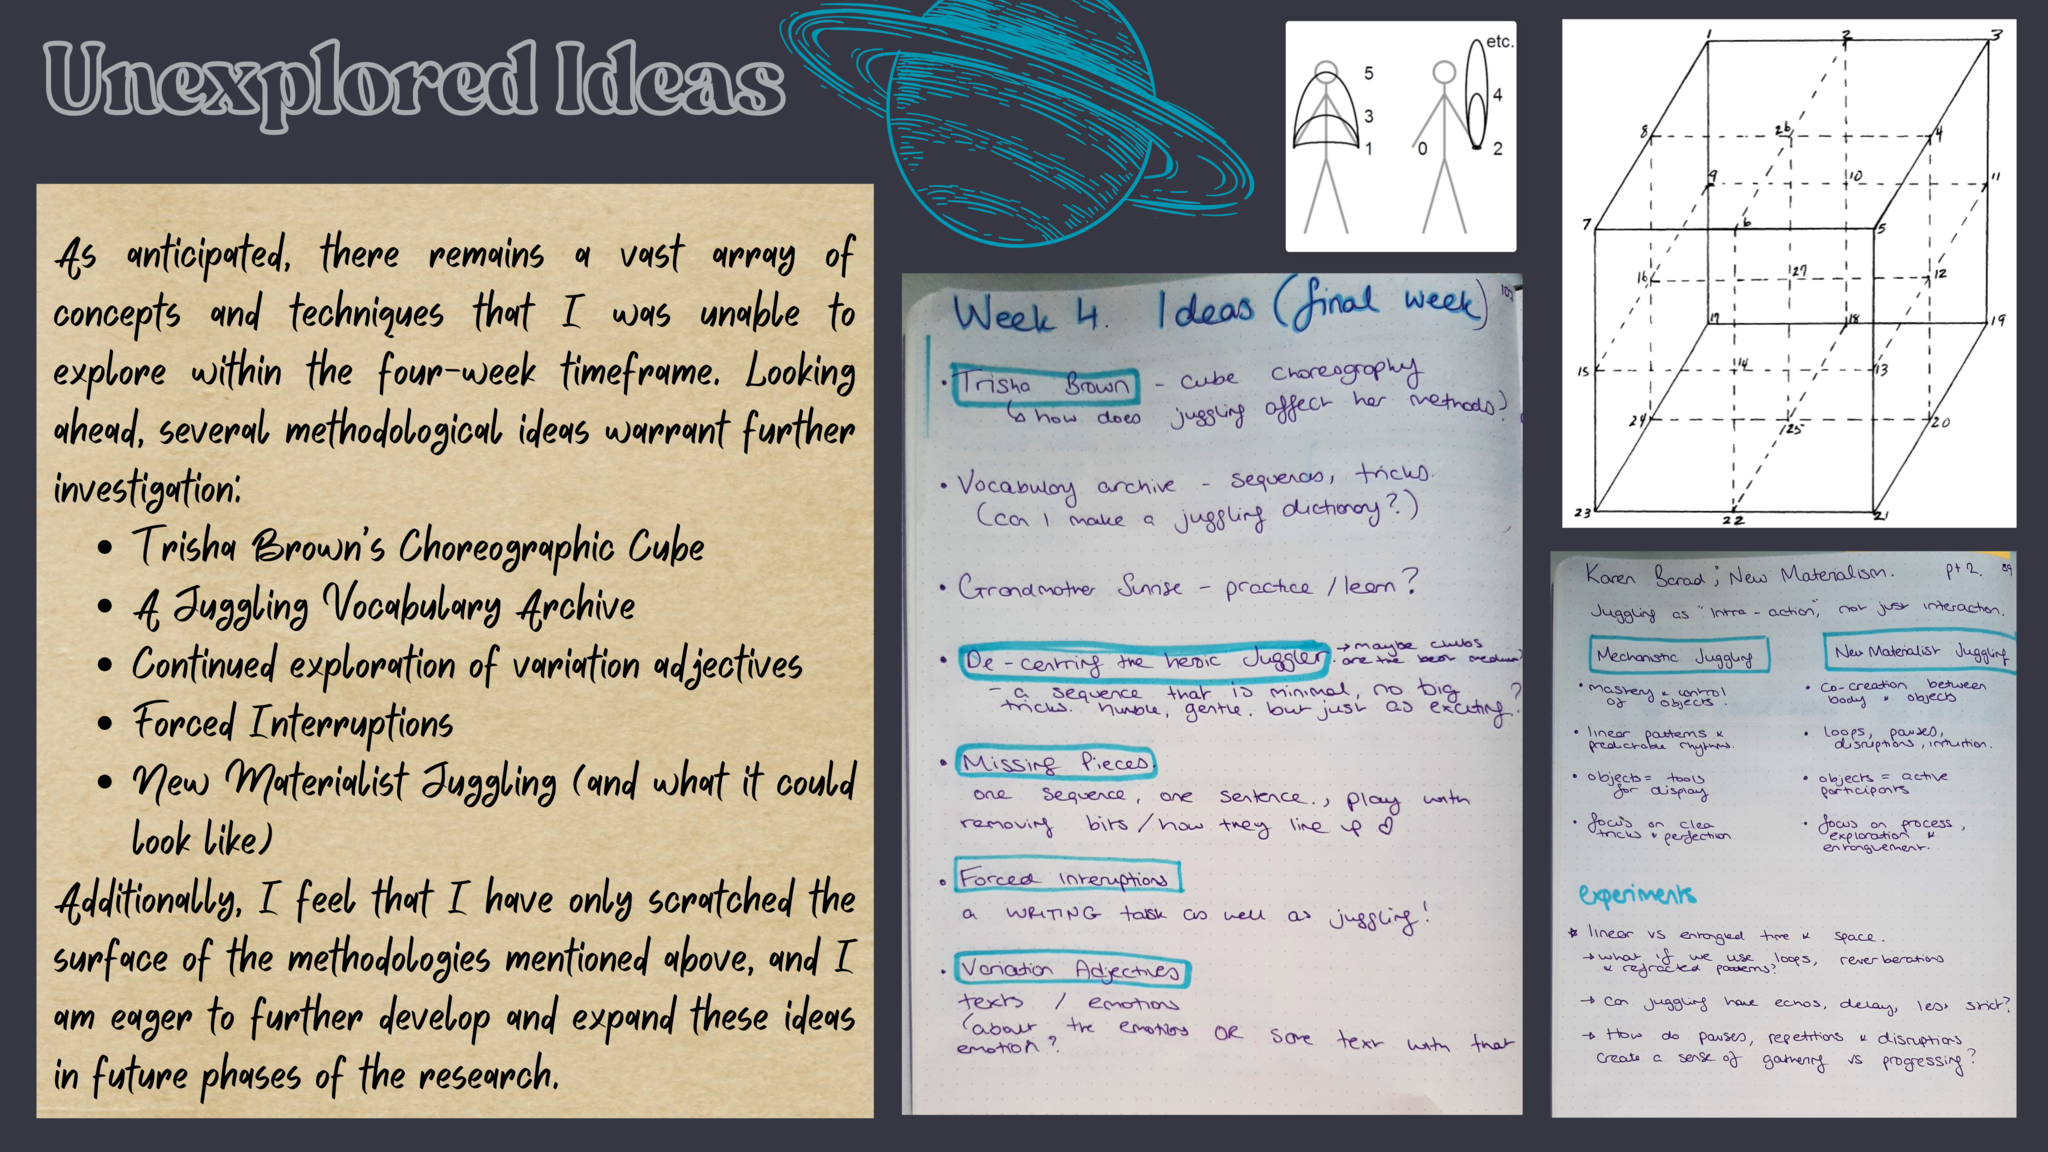 Unexplored Ideas
As anticipated, there remains a vast array of
concepts and techniques that I was unable to
explore within the four-week timeframe. Looking
ahead, several methodological ideas warrant further
investigation:
• Trisha Brown's Choreographic Cube
• A Juggling Vocabulary Archive
• Continued exploration of variation adjectives
• Forced Interruptions
• New Materialist Juggling (and what it could
look like)
Additionally, I feel that I have only scratched the
surface of the methodologies mentioned above, and I
am eager to further develop and expand these ideas
in future phases of the research.
etc.
5
4
3
1
0
2
1 2 3
8 26 4
9 10 11
7 6 5
16 27 12
17 18 19
15 14 13
24 25 20
23 22 21
Week 4. Ideas (final week)
• Trisha Brown - cube choreography
↳ how does juggling affect her methods?
• Vocabulary archive - sequences, tricks.
(can I make a juggling dictionary?)
• Grandmother Sunrise - practice / learn?
• De-centring the heroic Juggler. → maybe clubs
are the best medium?
- a sequence that is minimal, no big
tricks. humble, gentle. but just as exciting?
• Missing Pieces.
one sequence, one sentence., play with
removing bits / how they line up ♡
• Forced Interuptions
a WRITING task as well as juggling!
• Variation Adjectives
texts / emotions
(about the emotions OR some text with that
emotion?
Karen Barad; New Materialism. pt 2. 89
Juggling as "intra-action", not just interaction.
Mechanistic Juggling
• mastery & control
of objects.
• linear patterns &
predictable rhythms.
• objects = tools
for display
• focus on clean
tricks & perfection
New Materialist Juggling
• co-creation between
body & objects
• loops, pauses,
disruptions, intuition.
• objects = active
participants
• focus on process,
exploration &
entanglement.
experiments
* linear vs entangled time & space.
→ what if we use loops, reverberations
& refracted patterns?
→ can juggling have echos, delay, less strict?
→ How do pauses, repetitions & disruptions
create a sense of gathering vs progressing?